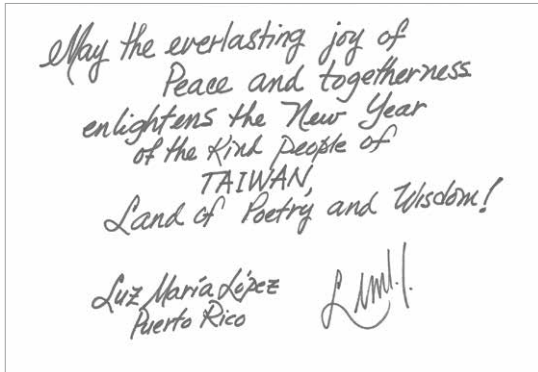 May the everlasting joy of
Peace and togetherness
enlightens the New Year
of the Kind people of
TAIWAN,
Land of Poetry and Wisdom!
Luz María López
Puerto Rico